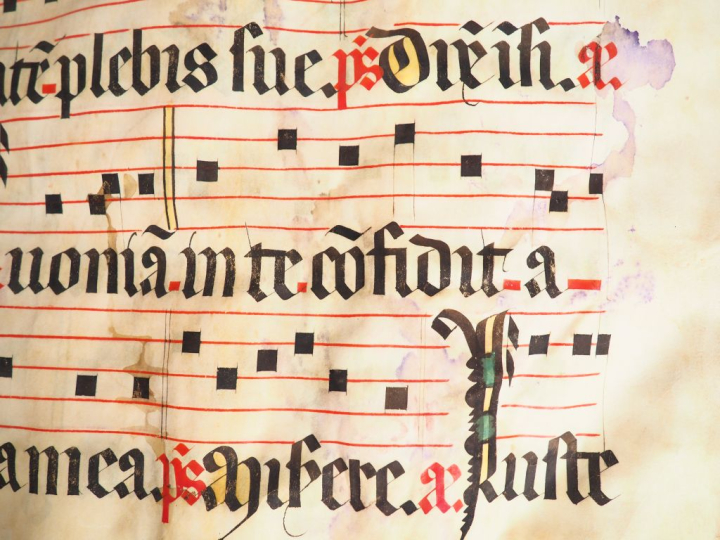 tẽ plebis sue. p̃s Dix̃ iñ. æ.
uoniã in te cõfidit a
amea. p̃s Miserere. æ. Iuste